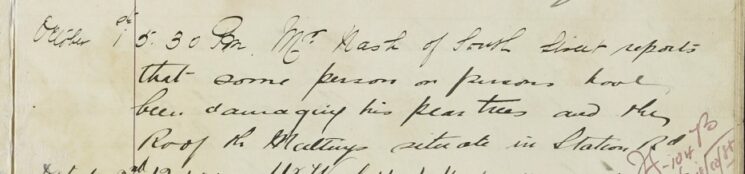 October 1st 5.30 Pm. Mr Nash of South Street reports
that some person or persons have
been damaging his pear trees and the
Roof the Maltings situate in Station Rd